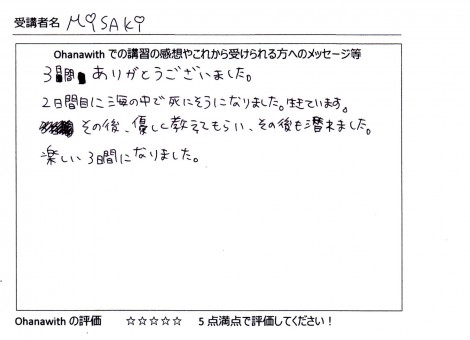 受講者名 MiSAKi
Ohanawith での講習の感想やこれから受けられる方へのメッセージ等
3日間 ありがとうございました。
2日間目に海の中で死にそうになりました。生きています。
その後、優しく教えてもらい、その後も潜れました。
楽しい3日間になりました。
Ohanawith の評価 ☆☆☆☆☆ 5点満点で評価してください！